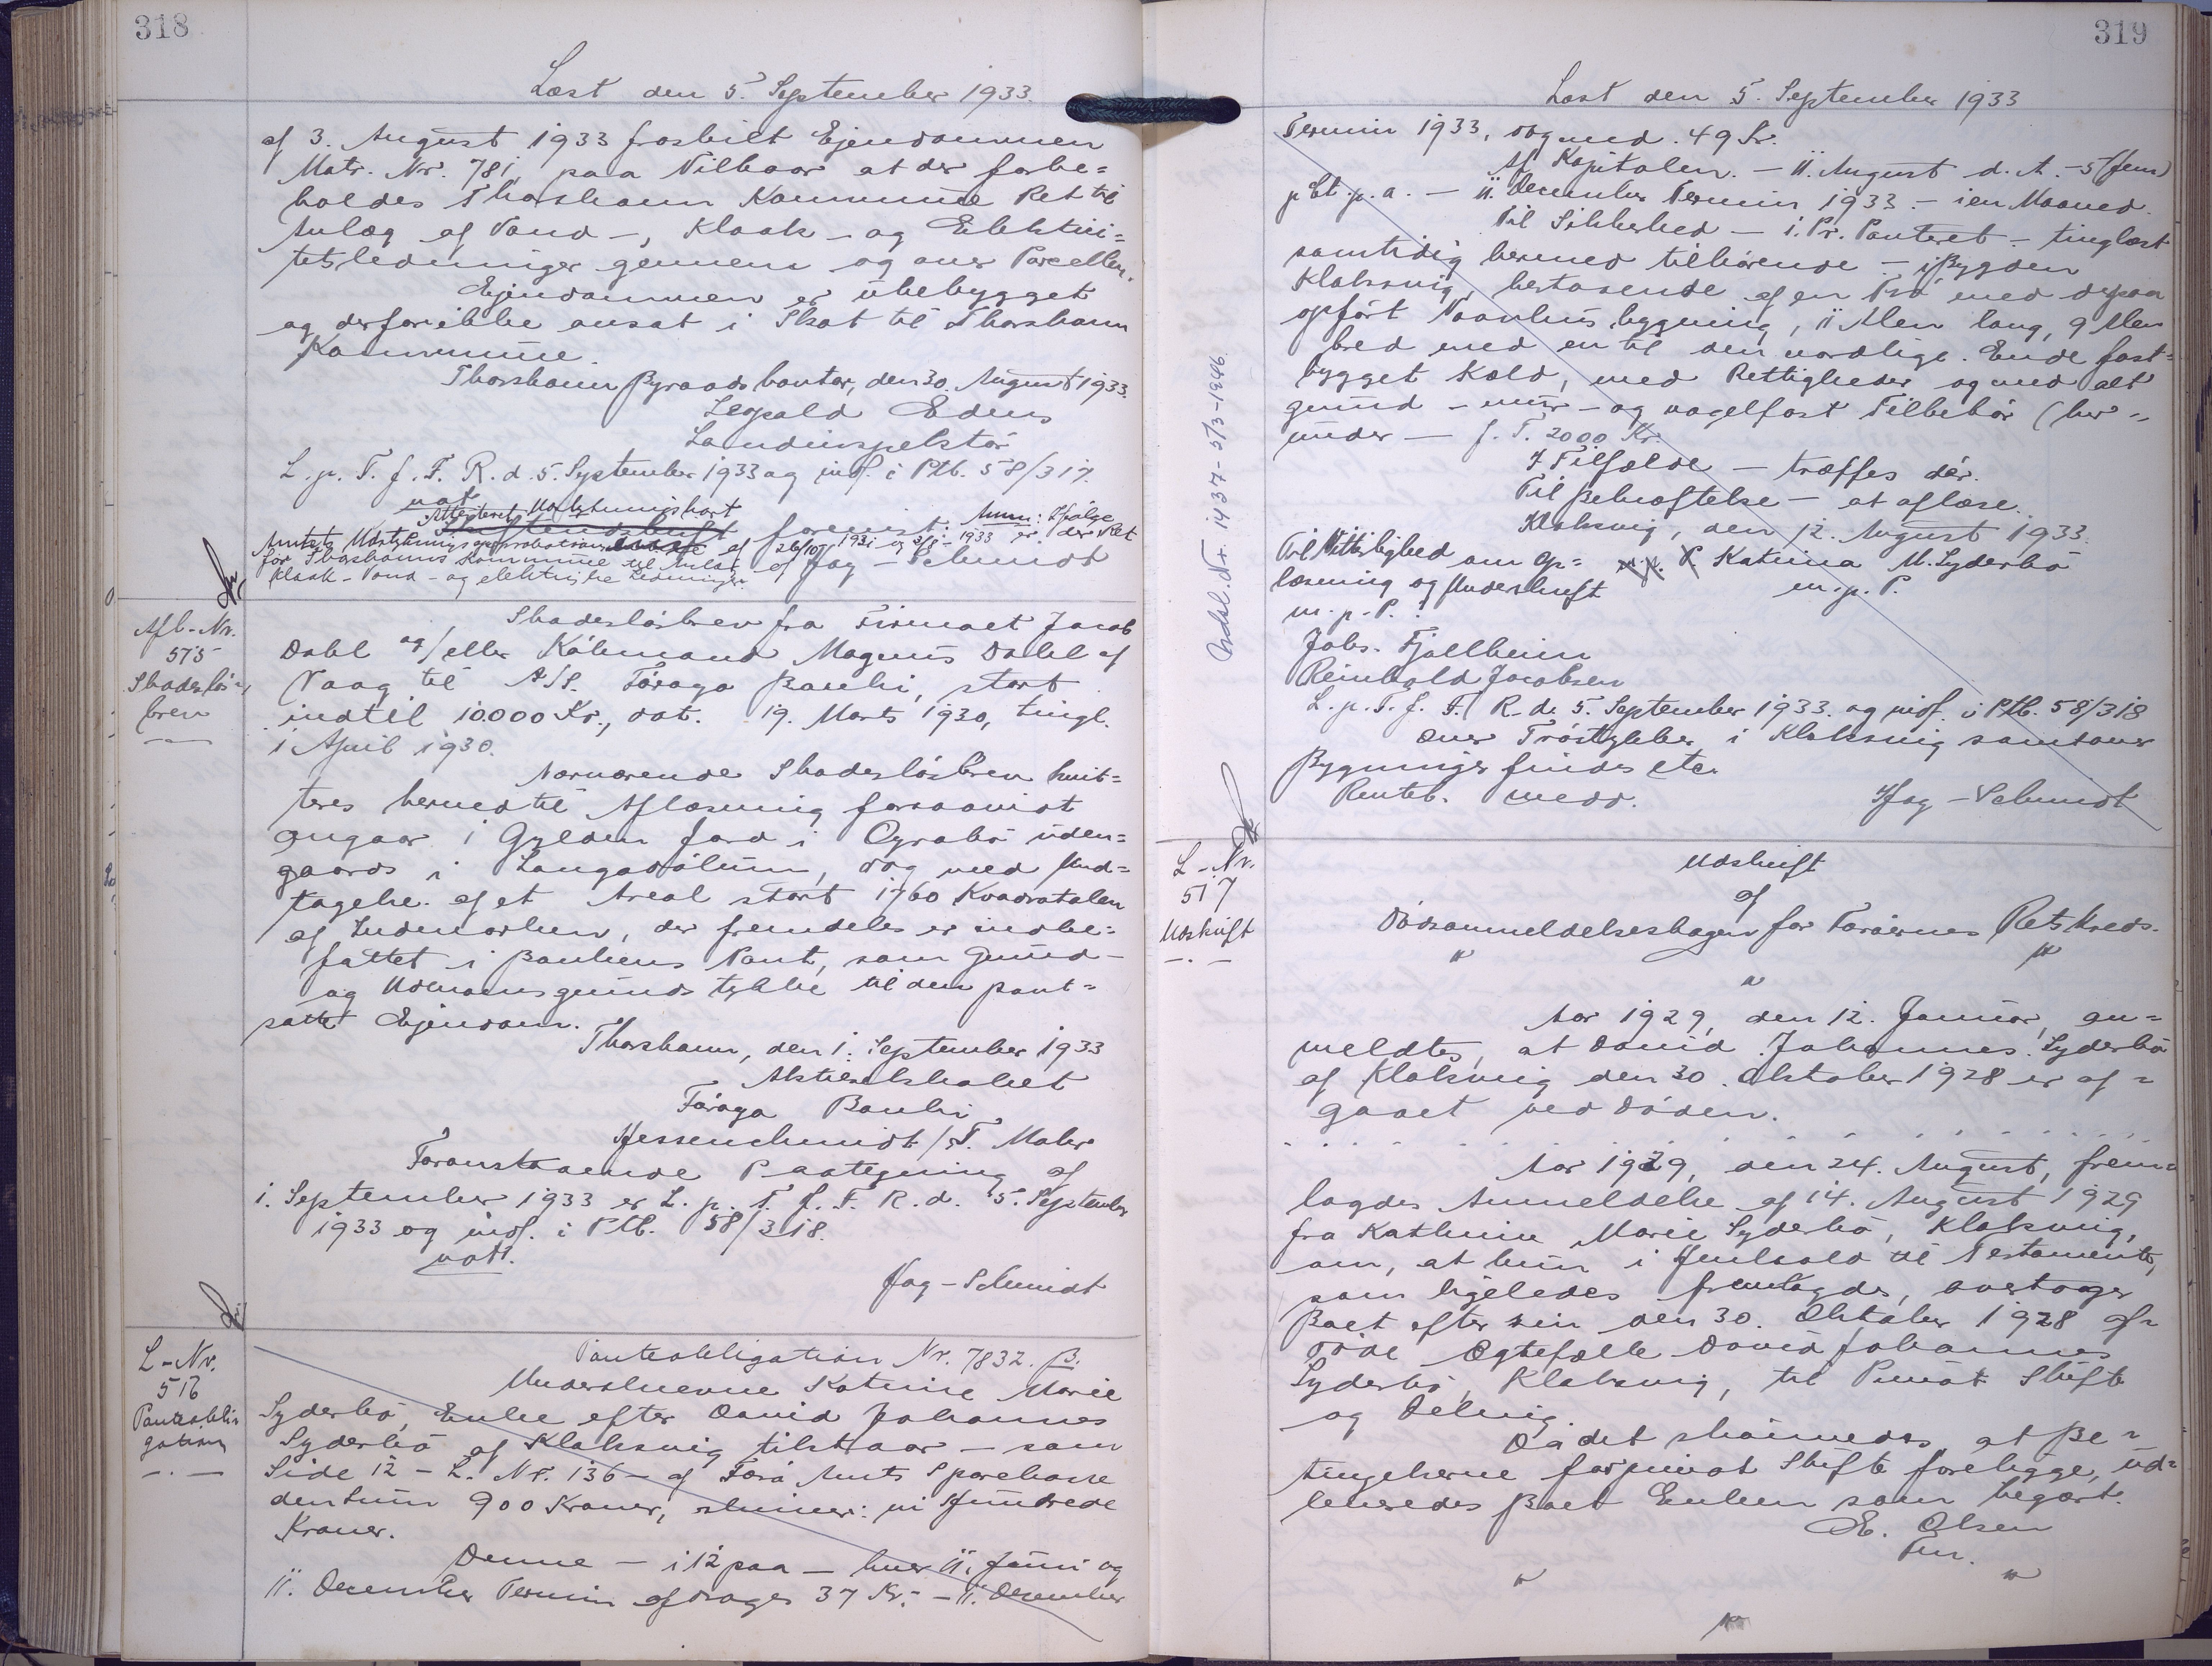 318
Læst den 5. September 1933.
af 3. August 1933 fraskilt Ejendommen
Matr. Nr. 781, paa Vilkaar at der forbe=
holdes Thorshavn Kommune Ret til
Anlæg af Vand-, Kloak- og Elektrici=
tetsledninger gennem og over Parcellen.
Ejendommen er ubebygget
og derfor ikke ansat i Skat til Thorshavn
Kommune.
Thorshavn Byraadskontor, den 30. August 1933.
Leopald Edens
Landinspektör
L. p. T. f. F. R. d. 5. September 1933 og indf. i Ptb. 58/317.
not
Attesteret Udstykningskort
forevist. Anm: Ifølge
Amtets Udstykningsapprobationer af 26/10 1931 og 3/8 - 1933 er der Ret
for Thorshavns Kommune til Anlæg af
Kloak- Vand- og elektriske Ledninger.
Jag-Schmidt
Afl-Nr.
575
Skadeslös=
brev
Skadeslösbrev fra Firmaet Jacob
Dahl og/eller Köbmand Magnus Dahl af
Vaag til A/S. Föroya Banki, stort
indtil 10.000 Kr., dat. 19. Marts 1930, tingl.
i April 1930.
Nærværende Skadeslösbrev kvit=
teres hermed til Aflæsning forsaavidt
angaar 1 Gylden Jord i Oyrabö uden=
gaards i Langadölum, dog med Und=
tagelse af et Areal stort 1760 Kvadratalen
af Indmarken, der fremdeles er indbe=
fattet i Bankens Pant, som Grund-
og Udmarksgrundstykke til den pant=
satte Ejendom.
Thorshavn, den 1. September 1933
Aktieselskabet
Föroya Banki
Hessenschmidt / T. Mohr
Foranstaaende Paategning af
1. September 1933 er L. p. T. f. F. R. d. 5. September
1933 og indf. i Ptb. 58/318.
not.
Jag-Schmidt
L-Nr.
516
Panteobli=
gation
Panteobligation Nr. 7832. B.
Underskrevne Katrine Marie
Syderbö, Enke efter David Johannes
Syderbö af Klaksvig tilstaar - som
Side 12 - L. Nr. 136 - af Færö Amts Sparekasse
den Sum 900 Kroner, skriver: ni Hundrede
Kroner.
Denne - i 12 paa - hver 11. Juni og
11. December Termin afdrages 37 Kr. - 11. December
319
Læst den 5. September 1933
Termin 1933, dog med 49 Kr.
Af Kapitalen. - 11. August d. A. - 5 (fem)
p Ct. p. a. - 11. December Termin 1933. - i en Maaned.
Til Sikkerhed - 1. Pr. Panteret - tinglæst
samtidig hermed tilhörende - i Bygden
Klaksvig, bestaaende af en Trö med derpaa
opfört Vaanhusbygning, 11 Alen lang, 9 Alen
bred med en til den nordlige Ende fast=
bygget Kold, med Rettigheder og med alt
grund- mur- og nagelfast Tilbehör (her=
under - f. T. 2000 Kr.
I Tilfælde - træffes dér.
Til Bekræftelse - at aflæse.
Klaksvig, den 12. August 1933.
Til Vitterlighed om Op=
læsning og Underskrift
m. p. P.:
Katrina M. Syderbö
m. p. P.
Johs. Fjallheim
Reinhold Jacobsen
L. p. T. f. F. R. d. 5. September 1933 og indf. i Ptb. 58/318
Over Tröstykker i Klaksvig samt over
Bygninger findes etc.
Renteb. medd.
Jag-Schmidt
Udsl. Nr. 1437 - 5/3-1946.
L-Nr.
517
Udskrift
Udskrift
af
Dödsanmeldelsesbogen for Færöernes Retskreds.
Aar 1929, den 12. Januar, an=
meldtes, at David Johannes Syderbö
af Klaksvig den 30. Oktober 1928 er af=
gaaet ved Döden.
Aar 1929, den 24. August, frem=
lagdes Anmeldelse af 14. August 1929
fra Kathrine Marie Syderbö, Klaksvig,
om, at hun i Henhold til Testamente,
som ligeledes fremlagdes, overtager
Boet efter sin den 30. Oktober 1928 af=
döde Ægtefælle David Johannes
Syderbö, Klaksvig, til Privat Skifte
og Deling.
Da det skönnedes, at Be=
tingelserne for privat Skifte foreligge, ud=
leveredes Boet Enken som begært.
E. Olsen
Fm.